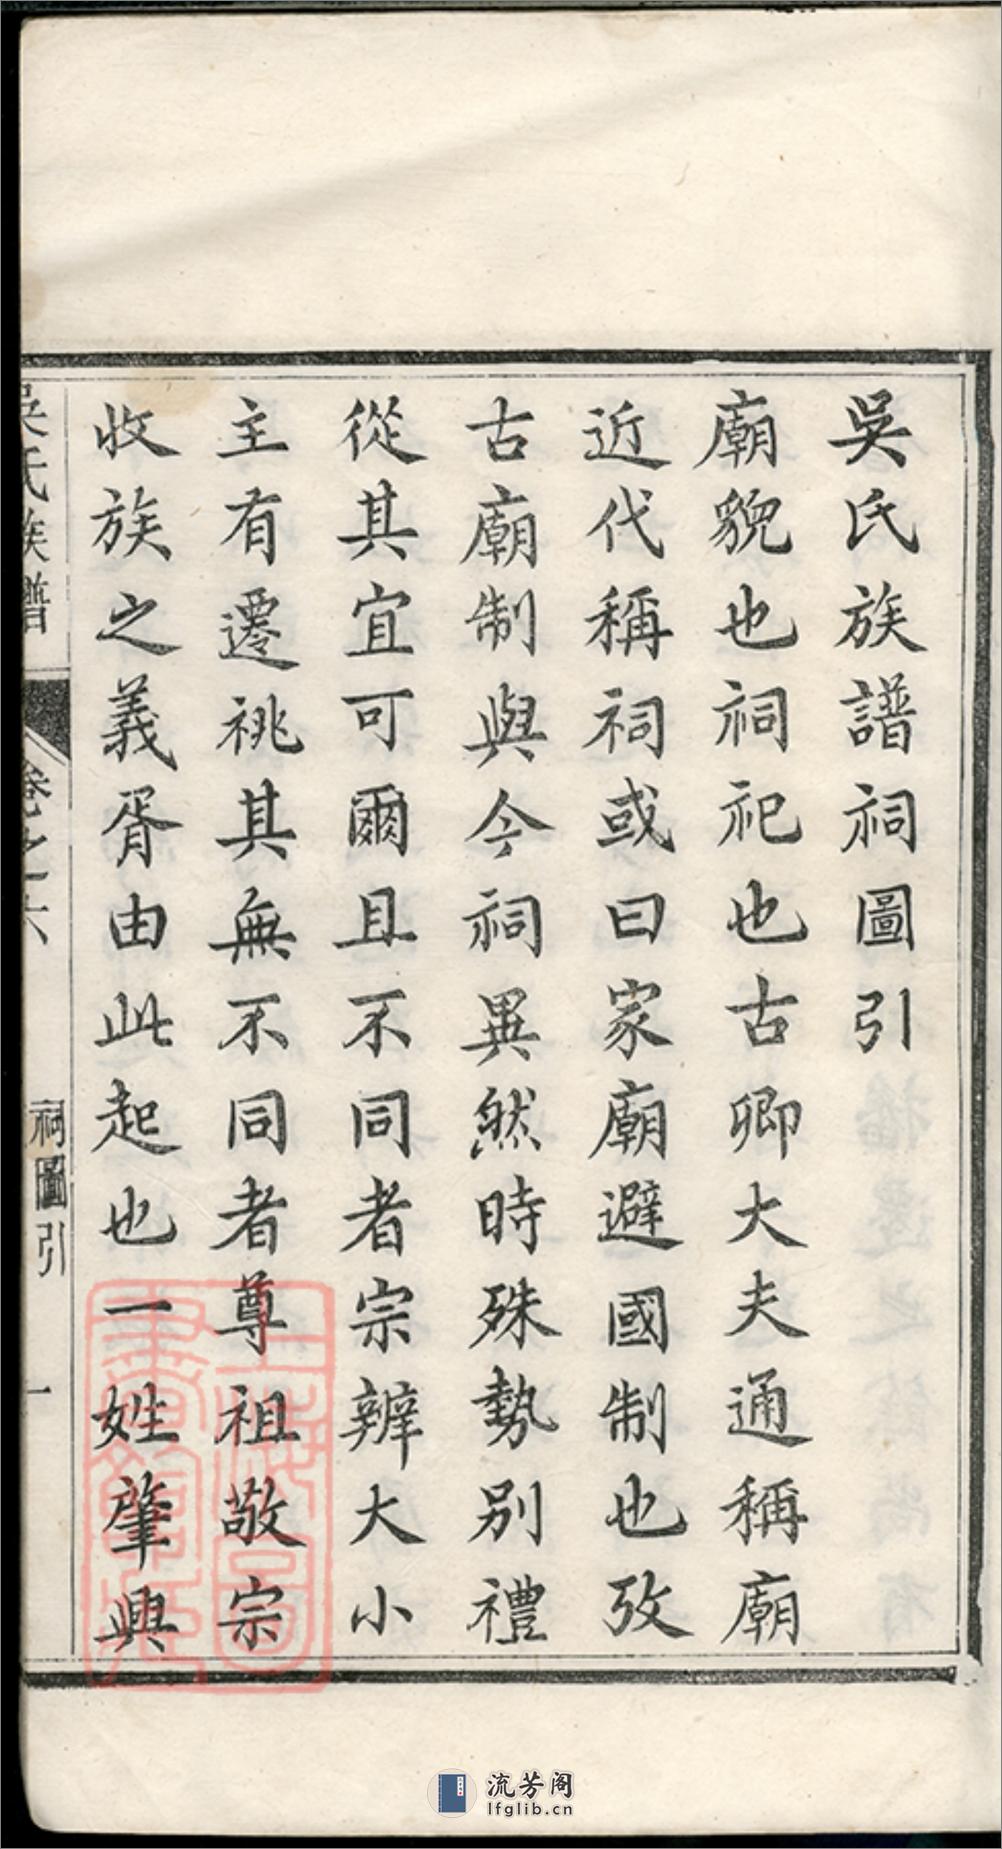 吳氏族譜祠圖引
廟貌也祠祀也古卿大夫通稱廟
近代稱祠或曰家廟避國制也攷
古廟制與今祠異然時殊勢別禮
從其宜可爾且不同者宗辨大小
主有遷祧其無不同者尊祖敬宗
收族之義胥由此起也一姓肇興
吳氏族譜
卷之六
祠圖引
一
上海圖書館藏
流芳阁
lfglib.cn